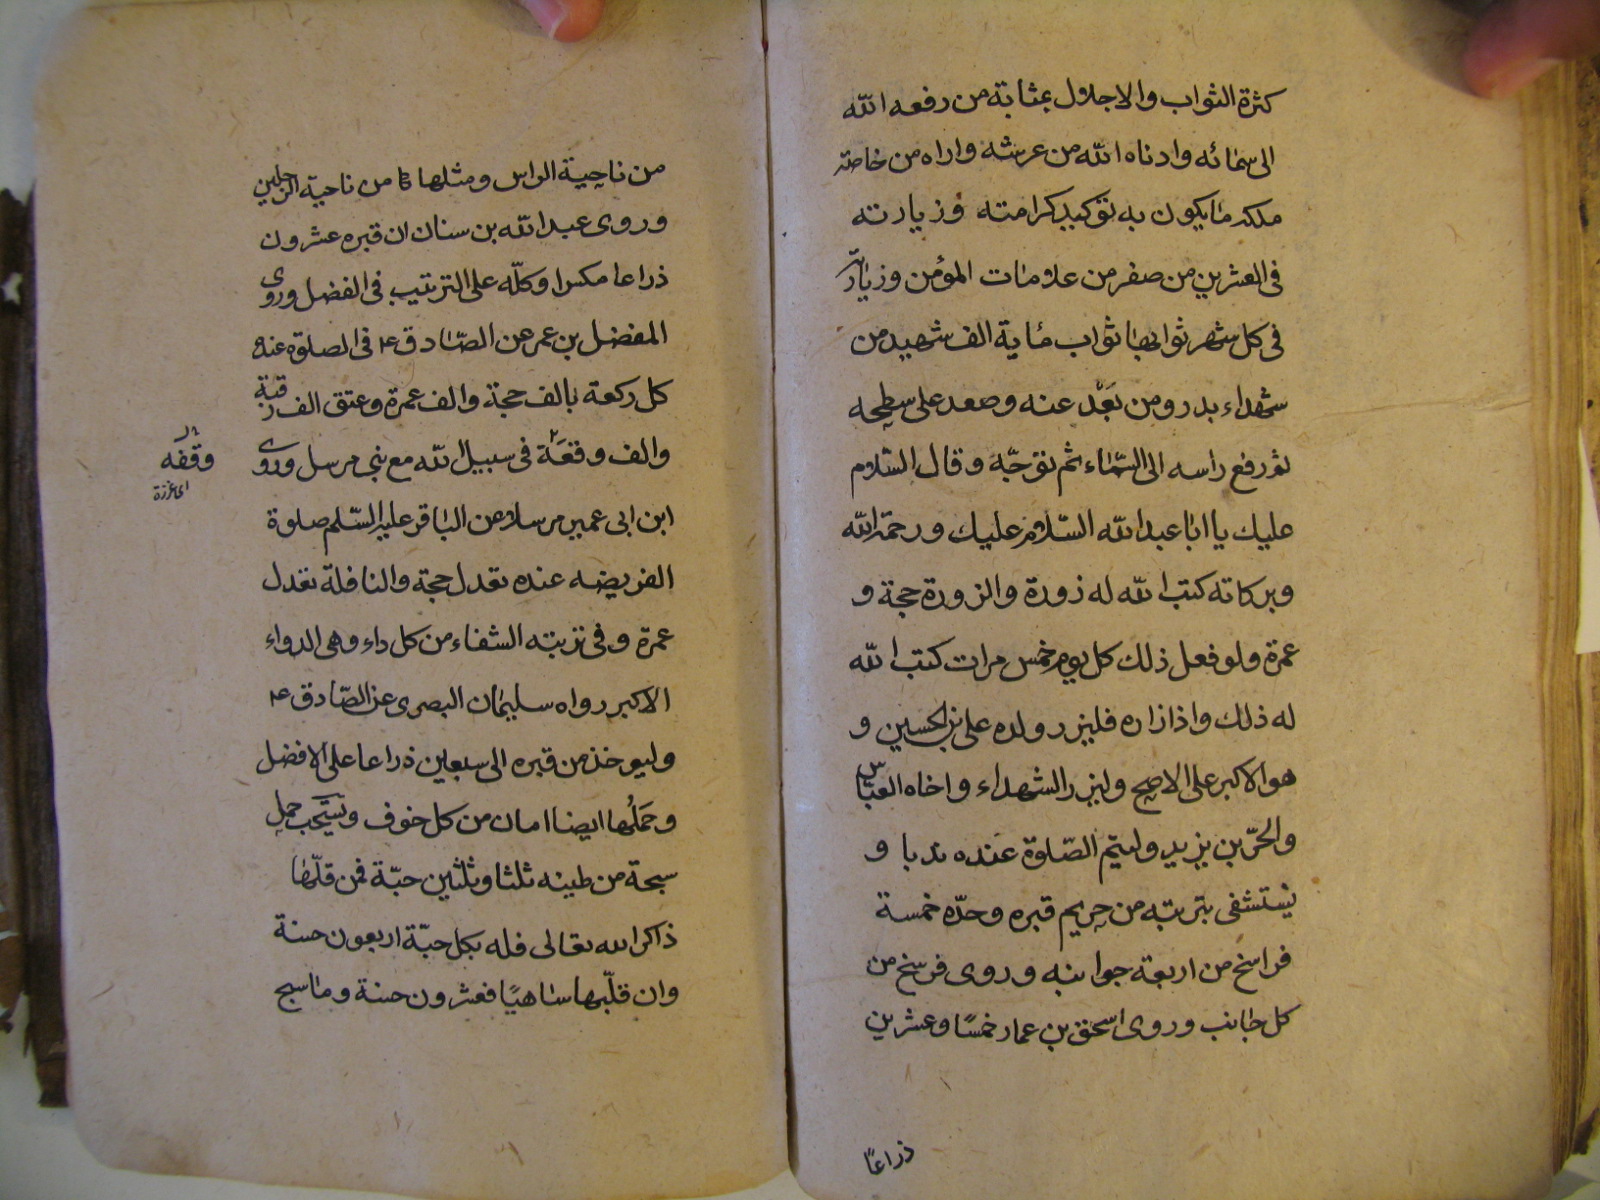 كثرة الثواب والاجلال بمثابة من رفعه الله
الى سمائه وادناه الله من عرشه واراه من خاصة
ملكه ما يكون به توكيد كرامته وزيارته
فى العشرين من صفر من علامات المؤمن وزيارته
فى كل شهر ثوابها ثواب ماية الف شهيد من
شهداء بدر ومن بَعُد عنه وصعد على سطحه
ثم رفع راسه الى السماء ثم توجّه وقال السّلام
عليك يا ابا عبد الله السّلام عليك ورحمة الله
وبركاته كتب الله له زورة والزورة حجة و
عمرة ولو فعل ذلك كل يوم خمس مرات كتب الله
له ذلك واذا زاره فليزر ولده على بن الحسين و
هو الاكبر على الاصح وليزر الشهداء واخاه العبّاس
والحرّ بن يزيد وليتم الصّلوة عنده ندبا و
يستشفى بتربته من حريم قبره وحدّه خمسة
فراسخ من اربعة جوانبه وروى فرسخ من
كل جانب وروى اسحق بن عمار خمسًا وعشرين
ذراعًا
من ناحية الراس ومثلها من ناحية الرجلين
وروى عبد الله بن سنان ان قبره عشرون
ذراعا مكسرا وكلّه على الترتيب فى الفضل وروى
المفضل بن عمر عن الصّادق ع فى الصلوة عنده
كل ركعة بالف حجة والف عمرة وعتق الف رقبة
والف وقعَة فى سبيل الله مع نبى مرسل وروى
وقفه
ابن ابى عمير مرسلا عن الباقر عليه السّلم صلوة
الفريضه عنده تعدل حجة والنافلة تعدل
عمرة وفى تربته الشفاء من كل داء وهى الدواء
الاكبر رواه سليمان البصرى عن الصّادق ع
وليوخذ من قبره الى سبعين ذراعا على الافضل
وحَملُها ايضا امان من كل خوف ويستحب حمل
سبحة من طينه ثلثا وثلثين حبّة فمن قلّبها
ذاكرا لله تعالى فله بكل حبّة اربعون حسنة
وان قلّبها ساهيًا فعشرون حسنة وما سبح